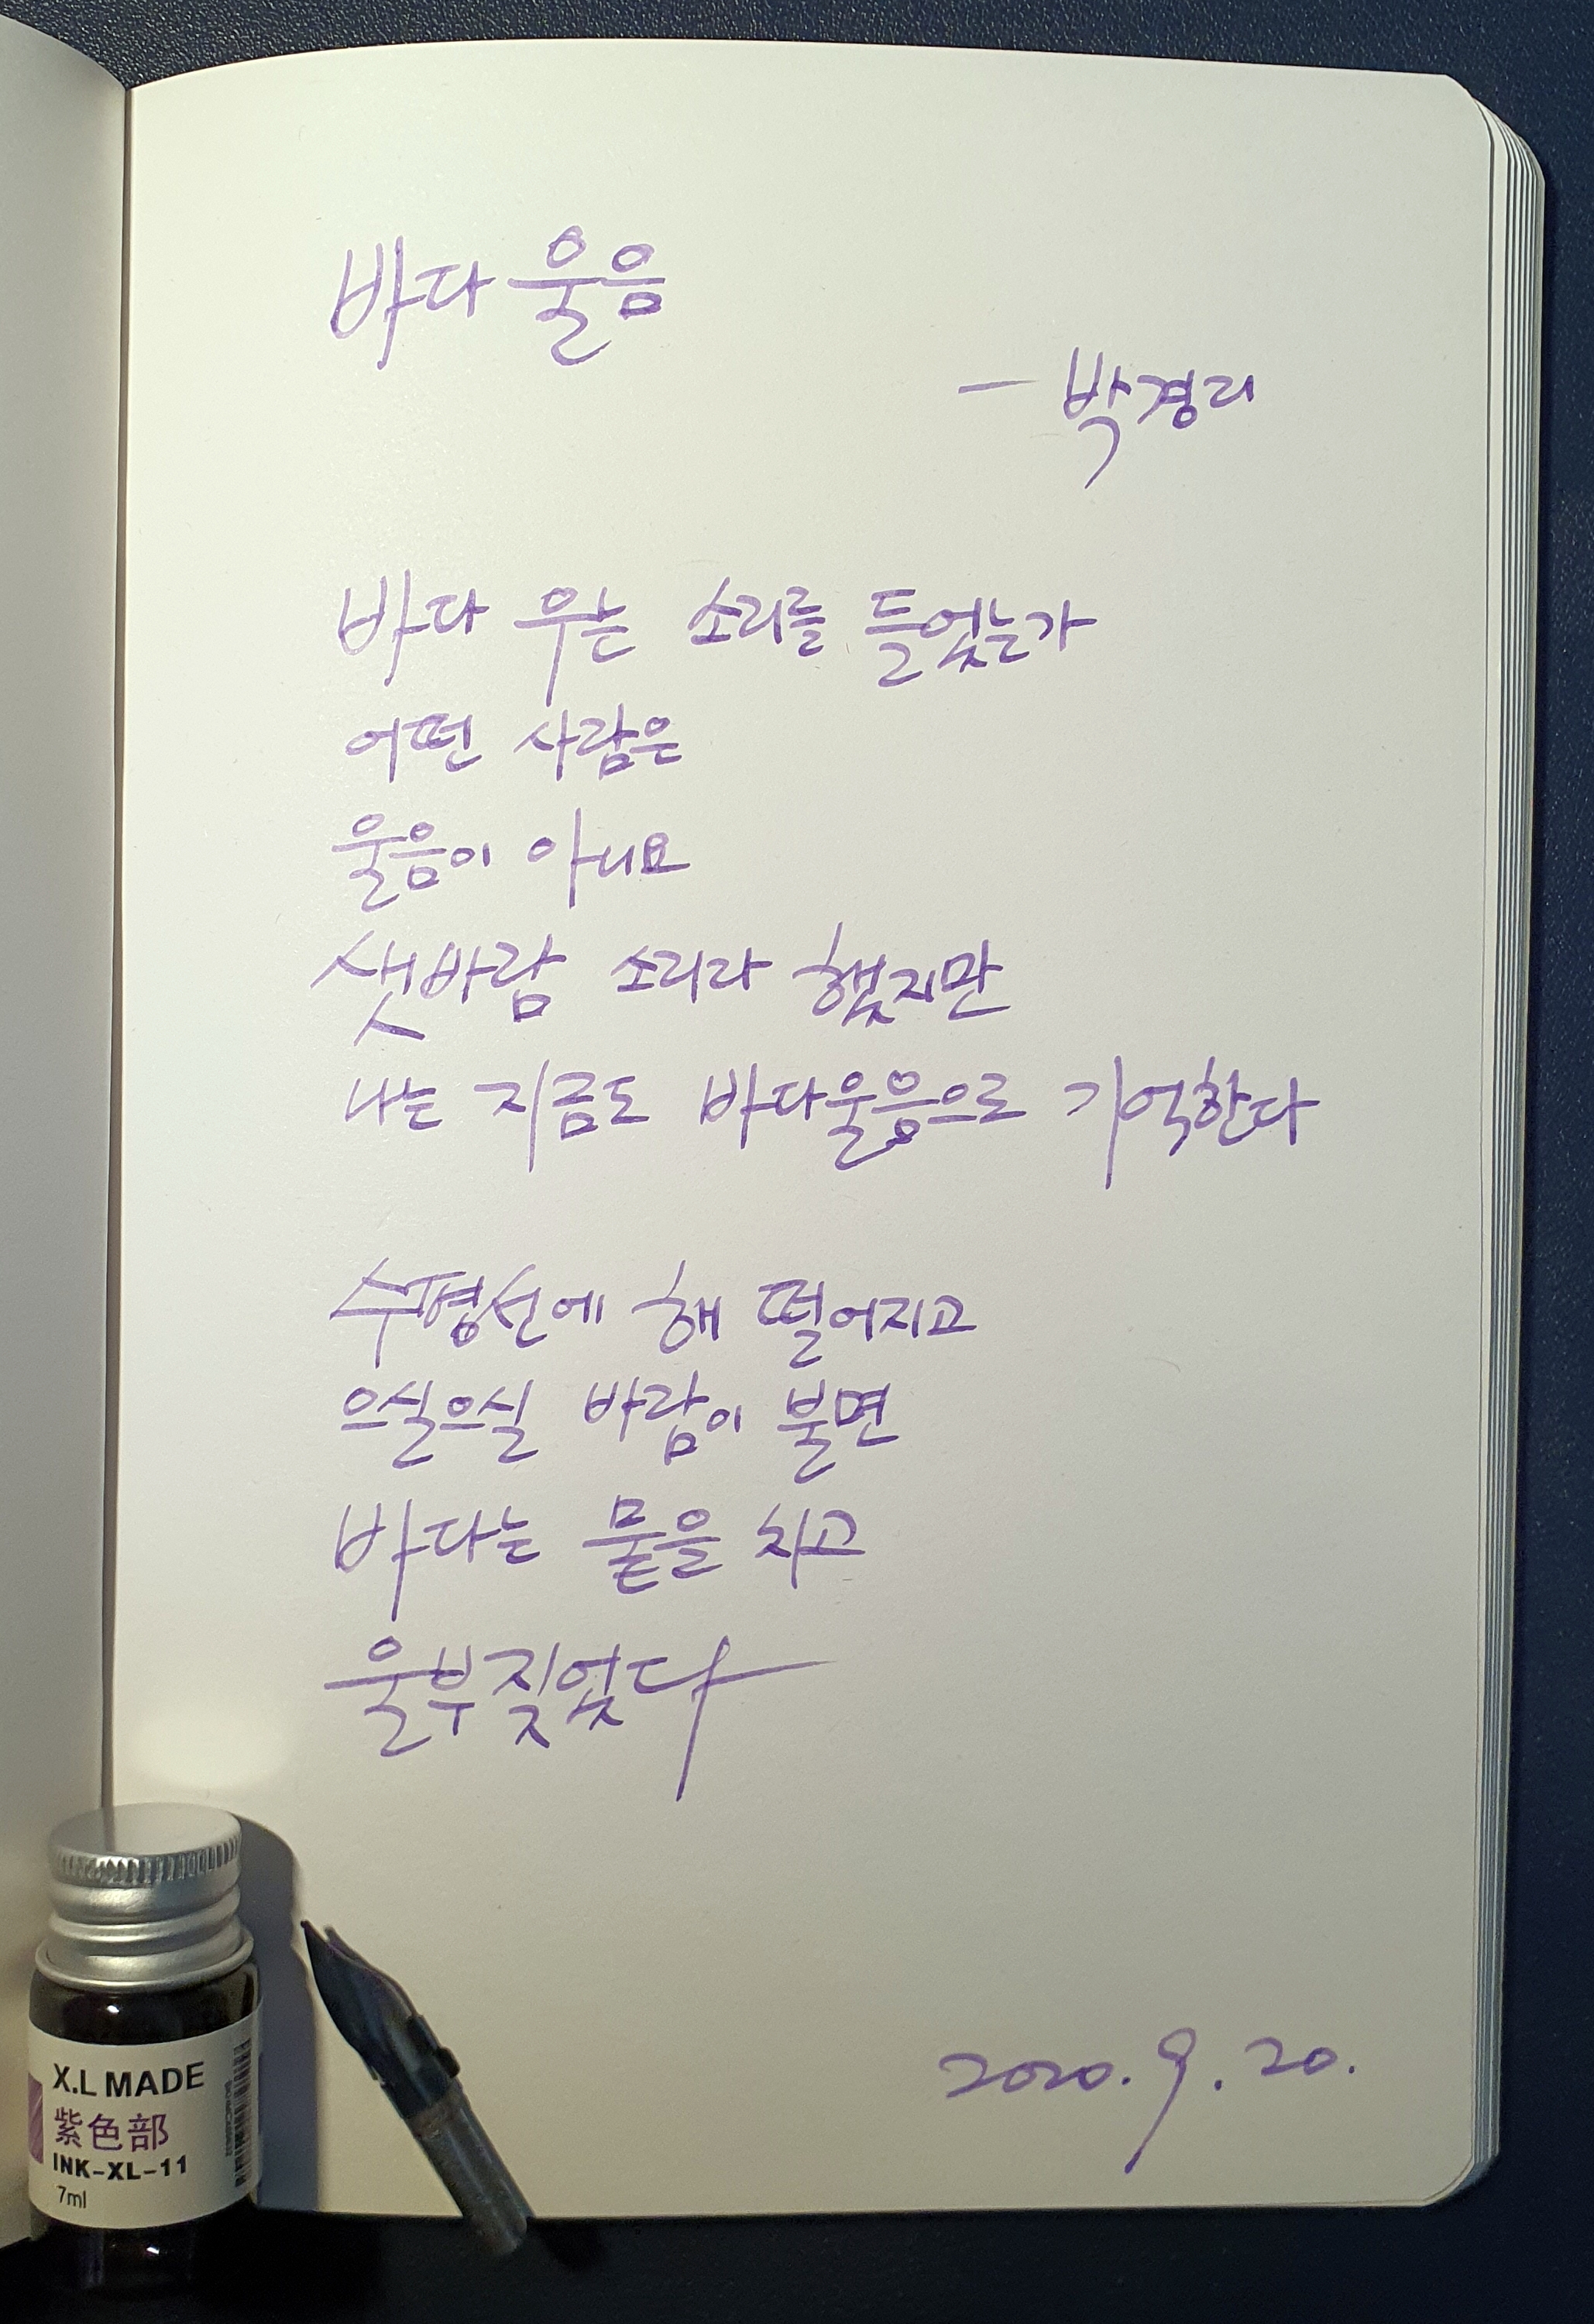 바다 울음
— 박경리
바다 우는 소리를 들었는가
어떤 사람은
울음이 아니요
샛바람 소리라 했지만
나는 지금도 바다울음으로 기억한다
수평선에 해 떨어지고
으실으실 바람이 불면
바다는 뭍을 치고
울부짖었다
2020. 9. 20.
X.L MADE
紫色部
INK-XL-11
7ml